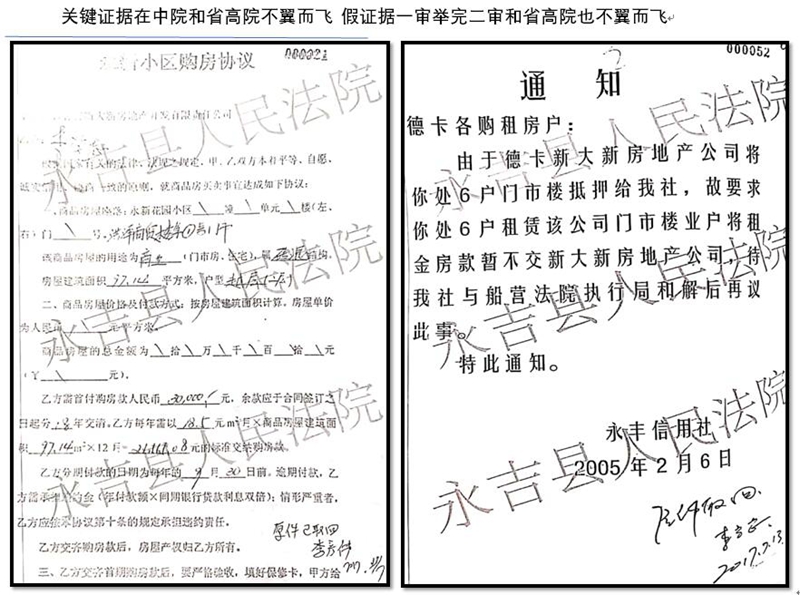 关键证据在中院和省高院不翼而飞 假证据一审举完二审和省高院也不翼而飞
小区购房协议
000021
一、商品房屋座落：永新花园小区 幢 单元 楼（左、
右）门 号。
该商品房屋的用途为 （门市房、住宅），属 结构，
房屋建筑面积 97.144 平方米，户型
二、商品房屋价格及付款方式：按房屋建筑面积计算，房屋单价
为人民币 元平方米。
商品房屋的总金额为 拾 万 千 百 拾 元
（￥ 元）。
乙方需首付购房款人民币 20,000 元，余款应于合同签订之
日起分 18 年交清。乙方每年需以 18.5 元/m²月×商品房屋建筑面
积 97.144 m²×12月= 的标准交纳购房款。
乙方分期付款的日期为每年的 9 月 20 日前。逾期付款，乙
方需承担 金（年付款额×同期银行贷款利息双倍）；情形严重者，
乙方应按本协议第十条的规定承担违约责任。
乙方交齐购房款后，房屋产权归乙方所有。
原件已取回
三、乙方交齐首期购房款后，要严格验收，填好保修卡，甲方给
000052
通 知
德卡各购租房户：
由于德卡新大新房地产公司将
你处6户门市楼抵押给我社，故要求
你处6户租赁该公司门市楼业户将租
金房款暂不交新大新房地产公司，待
我社与船营法院执行局和解后再议
此事。
特此通知。
永丰信用社
2005年2月6日
2017.7.13
永吉县人民法院
永吉县人民法院
永吉县人民法院
永吉县人民法院
永吉县人民法院
永吉县人民法院